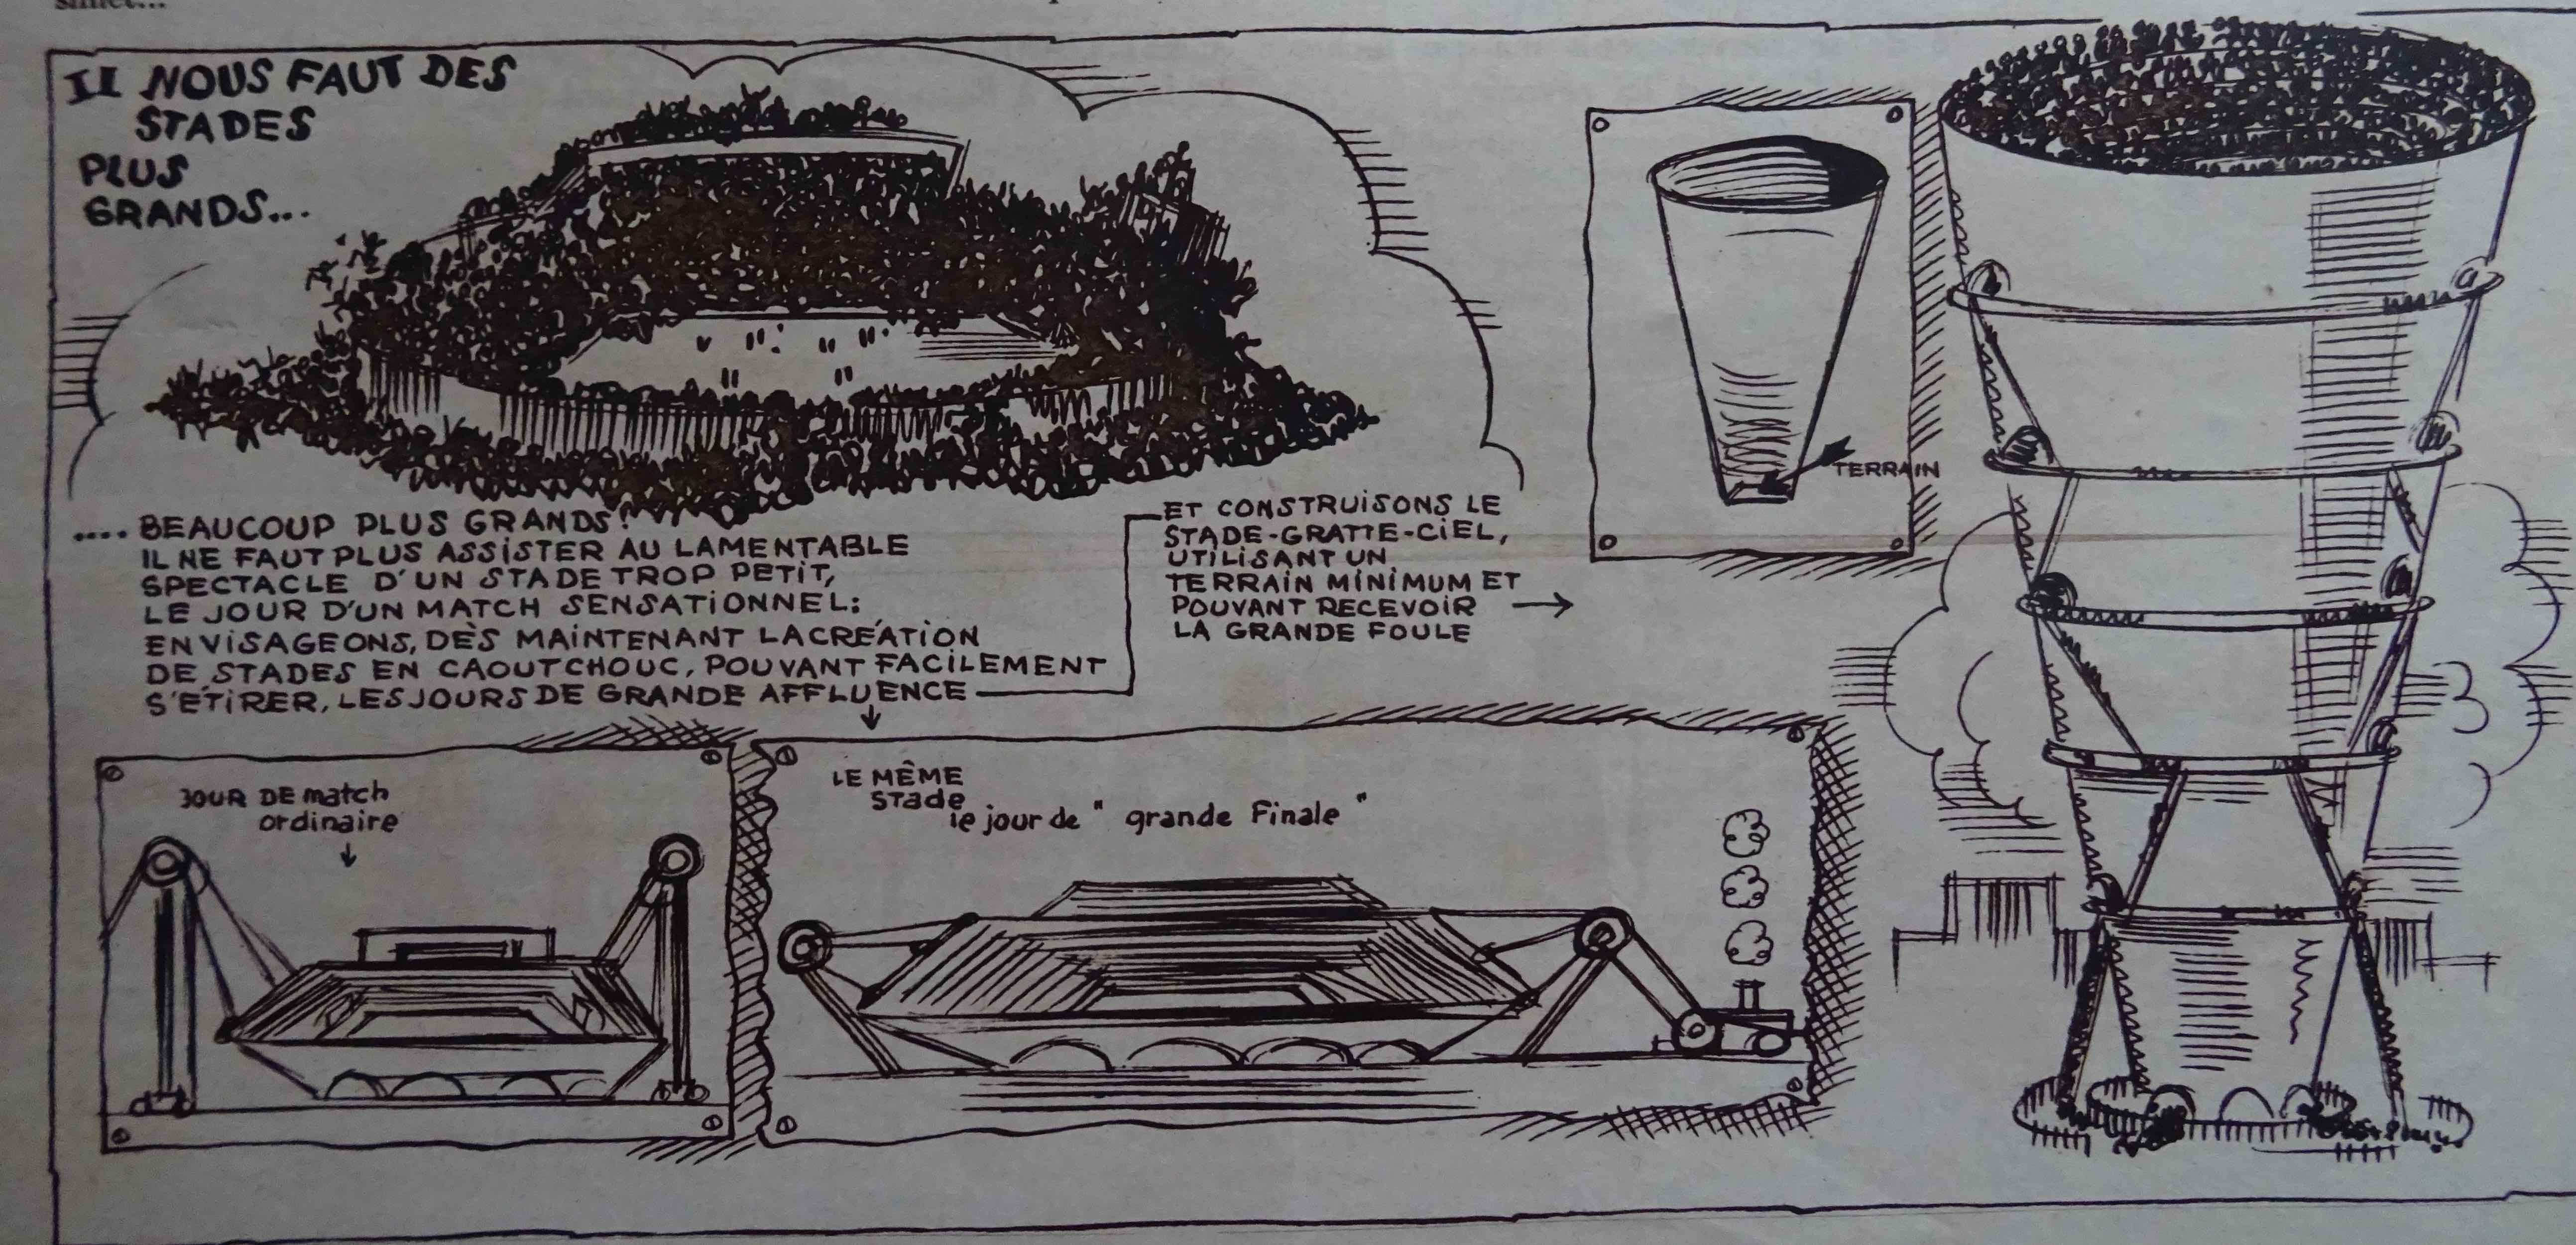 II NOUS FAUT DES
STADES
PLUS
GRANDS...
.... BEAUCOUP PLUS GRANDS!
IL NE FAUT PLUS ASSISTER AU LAMENTABLE
SPECTACLE D'UN STADE TROP PETIT,
LE JOUR D'UN MATCH SENSATIONNEL:
ENVISAGEONS, DÈS MAINTENANT LA CRÉATION
DE STADES EN CAOUTCHOUC, POUVANT FACILEMENT
S'ÉTIRER, LES JOURS DE GRANDE AFFLUENCE
ET CONSTRUISONS LE
STADE-GRATTE-CIEL,
UTILISANT UN
TERRAIN MINIMUM ET
POUVANT RECEVOIR
LA GRANDE FOULE
TERRAIN
JOUR DE match
ordinaire
LE MÊME
stade
le jour de " grande Finale "